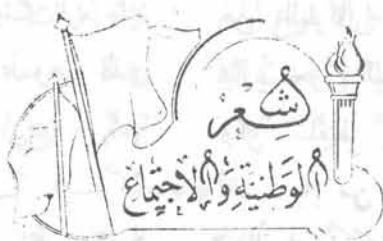 شِعر
الوَطنيّةِ وَالاجتِماع